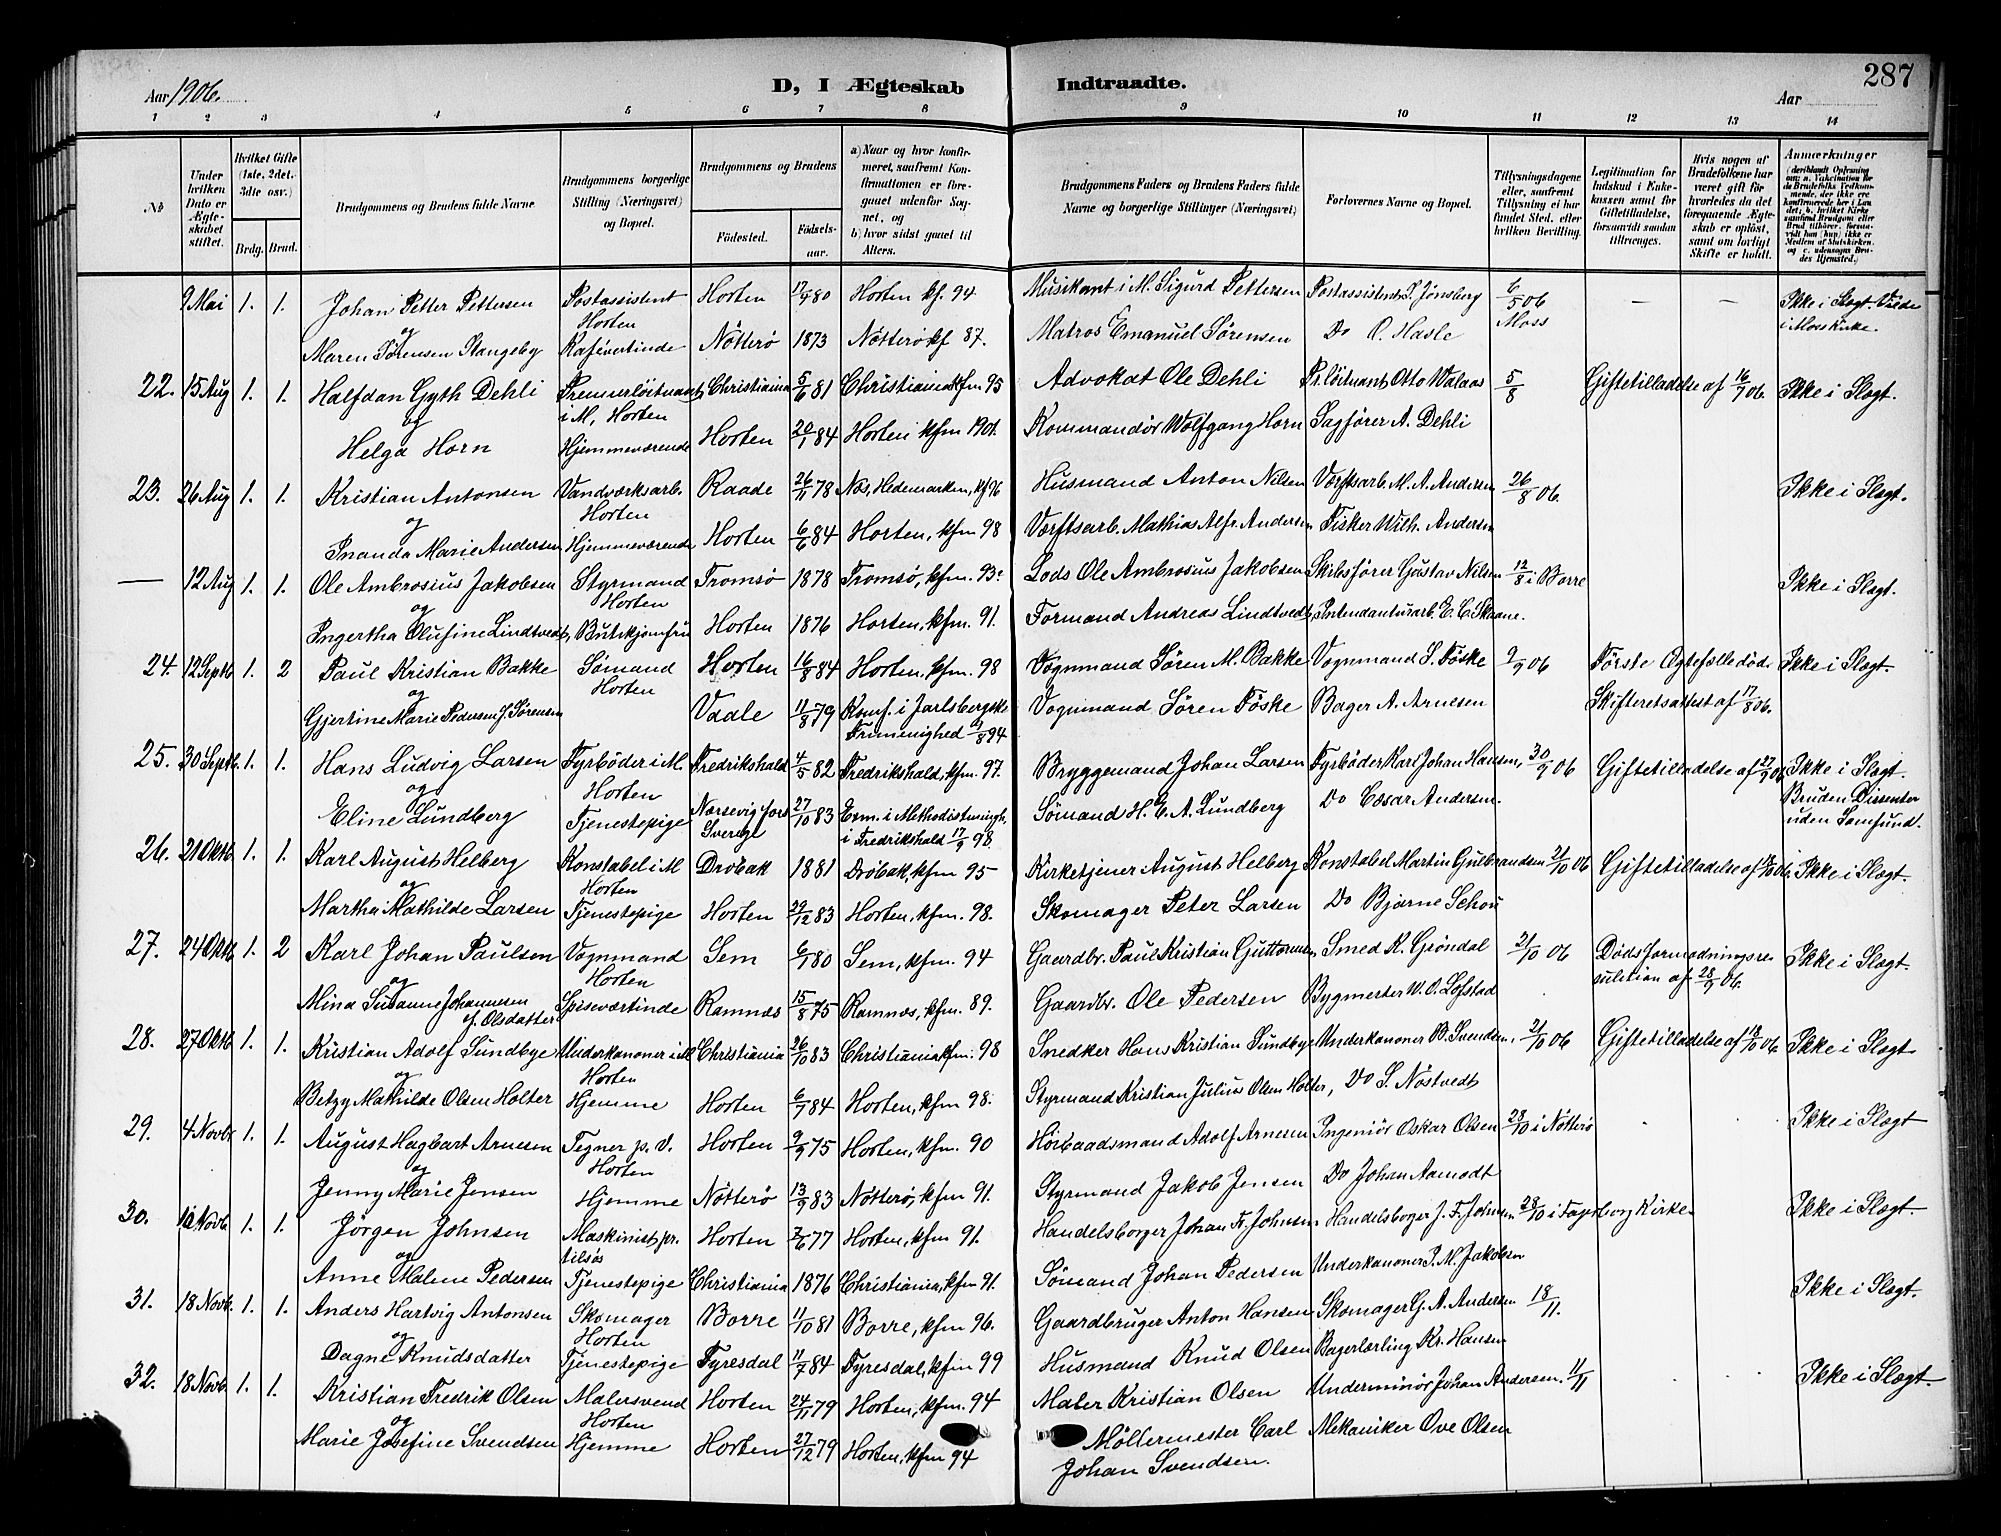 Aar 1906.
D, I Ægteskab Indtraadte.
Aar
287
1 2 3 4 5 6 7 8 9 10 11 12 13 14
No
Under hvilken Dato er Ægteskabet stiftet.
Hvilket Gifte (1ste, 2det, 3die osv.)
Brdg. Brud.
Brudgommens og Brudens fulde Navne
Brudgommens borgerlige Stilling (Næringsvei) og Bopæl.
Brudgommens og Brudens
Fødested.
Fødselsaar.
a) Naar og hvor konfirmeret, saafremt Konfirmationen er foregaaet udenfor Sognet, og
b) hvor sidst gaaet til Alters.
Brudgommens Faders og Brudens Faders fulde Navne og borgerlige Stillinger (Næringsvei)
Forlovernes Navne og Bopæl.
Tillysningsdagene eller, saafremt Tillysning ei har fundet Sted, efter hvilken Bevilling.
Legitimation for Indskud i Enkekassen samt for Giftetilladelse, forsaavidt saadan tiltrænges.
Hvis nogen af Brudefolkene har været gift før hvorledes da det foregaaende Ægteskab er opløst, samt om lovligt Skifte er holdt.
Anmærkninger
(deriblandt Oplysning om: a. Vakcination for de Brudefolks Vedkommende, der ikke ere konfirmerede her i Landet; b. hvilket Kirkesamfund Brudgom eller Brud tilhører, forsaavidt han (hun) ikke er Medlem af Statskirken, og c. udensogns Brudes Hjemsted.)
9 Mai 1. 1. Johan Petter Pettersen Postassistent Horten Horten 17/9 80 Horten kf. 94 Musikant i M. Sigurd Pettersen Postassistent J. Jönsberg 6/5 06 Moss — — Ikke i Slægt. Viede i Moss Kirke.
og
Maren Sørensen Stangeby Kaféværtinde Nötterö 1873 Nötterö kf 87. Matros Emanuel Sørensen Do O. Hasle
22. 15 Aug 1. 1. Halfdan Gyth Dehli Premierløitnant i M, Horten Christiania 5/6 81 Christiania kfm 95 Advokat Ole Dehli Pr.løitnant Otto Walaas 5/8 Giftetilladelse af 16/7 06. Ikke i Slægt.
og
Helga Horn Hjemmeværende Horten 20/1 84 Horten kfm 1901. Kommandör Wolfgang Horn Sagfører A. Dehli
23. 26 Aug 1. 1. Kristian Antonsen Vandværksarb. Horten Raade 26/11 78 Næs, Hedemarken, kf 96 Husmand Anton Nilsen Værftsarb. M. A. Andersen 26/8 06. Ikke i Slægt.
og
Inanda Marie Andersen Hjemmeværende Horten 6/6 84 Horten, kfm 98 Værftsarb. Mathias Alfr. Andersen Fisker Wilh. Andersen
— 12 Aug 1. 1. Ole Ambrosius Jakobsen Styrmand Horten Tromsö 1878 Tromsö, kfm. 93. Lods Ole Ambrosius Jakobsen Skibsfører Gustav Nilsen 12/8 i Borre Ikke i Slægt.
og
Ingertha Olufine Lindtvedt, Butikjomfru Horten 1876 Horten, kfm. 91. Formand Andreas Lindtvedt, Intendanturarb. E. C. Skaane.
24. 12 Septb 1. 2 Paul Kristian Bakke Sømand Horten Horten 16/8 84 Horten, kfm. 98 Vognmand Søren M. Bakke Vognmand S. Föske 9/9 06 Første Ægtefælle död. Ikke i Slægt.
og
Gjertine Marie Pedersen f. Sørensen Vaale 11/8 79 Konf. i Jarlsbergske Frimenighed 2/8 94 Vognmand Sören Föske Bager A. Arnesen Skifteretsattest af 17/8 06.
25. 30 Septb. 1. 1. Hans Ludvig Larsen Fyrböder i M. Horten Fredrikshald 4/5 82 Fredrikshald, kfm. 97. Bryggemand Johan Larsen Fyrböder Karl Johan Hansen, 30/9 06 Giftetilladelse af 27/9 06 Ikke i Slægt.
og
Eline Lundberg Tjenestepige Næsevig fors Sverige 27/10 83 Exm. i Methodistmenigh. i Fredrikshald 17/9 98 Sømand H. E. A. Lundberg Do Cæsar Andersen. Bruden Dissenter uden Samfund.
26. 21 Oktb 1. 1. Karl August Helberg Konstabel i M Horten Dröbak 1881 Dröbak, kfm. 95 Kirketjener August Helberg Konstabel Martin Gulbrandsen 21/10 06 Giftetilladelse af 18/10 06. Ikke i Slægt.
og
Martha Mathilde Larsen Tjenestepige Horten 29/12 83 Horten, kfm. 98. Skomager Peter Larsen Do Bjarne Schou
27. 24 Oktb. 1. 2 Karl Johan Paulsen Vognmand Horten Sem 6/1 80 Sem, kfm. 94 Gaardbr. Paul Kristian Guttormsen Smed K. Gröndal 21/10 06 Dödsformodningsresulution af 28/9 06. Ikke i Slægt.
og
Mina Susanne Johannesen f. Olsdatter Spiseværtinde Ramnæs 15/8 75 Ramnæs, kfm. 89. Gaardbr. Ole Pedersen Bygmester W. O. Lofstad
28. 27 Oktb 1. 1. Kristian Adolf Sundbye Underkanoner i M Horten Christiania 26/10 83 Christiania kfm. 98 Snedker Hans Kristian Sundbye Underkanoner B. Svendsen, 21/10 06 Giftetilladelse af 18/10 06. Ikke i Slægt
og
Betzy Mathilde Olsen Holter Hjemme Horten 6/7 84 Horten, kfm 98. Styrmand Kristian Julius Olsen Holter, Do S. Nöstvedt
29. 4 Novbr. 1. 1. August Hagbart Arnesen Tegner p. V. Horten Horten 9/9 75 Horten, kfm. 90 Höibaadsmand Adolf Arnesen Ingeniör Oskar Olsen 28/10 i Nötterö Ikke i Slægt
og
Jenny Marie Jensen Hjemme Nötterö 13/9 83 Nötterö, kfm 91. Styrmand Jakob Jensen Do Johan Aamodt
30. 10 Novb. 1. 1. Jörgen Johnsen Maskinist pr. tilsøs Horten 7/6 77 Horten, kfm 91. Handelsborger Johan Fr. Johnsen Handelsborger J. F. Johnsen 28/10 i Fagerborg Kirke Ikke i Slægt
og
Anne Malene Pedersen Tjenestepige Christiania 1876 Christiania, kfm 91. Sömand Johan Pedersen Underkanoner P. M. Jakobsen
31. 18 Novb. 1. 1. Anders Hartvig Antonsen Skomager Horten Borre 11/10 81 Borre, kfm 96. Gaardbruger Anton Hansen Skomager G. A. Andersen 18/11. Ikke i Slægt.
og
Dagne Knudsdatter Tjenestepige Fyresdal 11/7 84 Fyresdal, kfm 99 Husmand Knud Olsen Bagerlærling Kr. Hansen
32. 18 Novb. 1. 1. Kristian Fredrik Olsen Malersvend Horten Horten 24/11 79 Horten, kfm. 94 Maler Kristian Olsen Underminör Johan Andersen. 11/11 Ikke i Slægt.
og
Marie Josefine Svendsen Hjemme Horten 27/12 79 Horten, kfm 94 Möllermester Carl Johan Svendsen. Mekaniker Ove Olsen